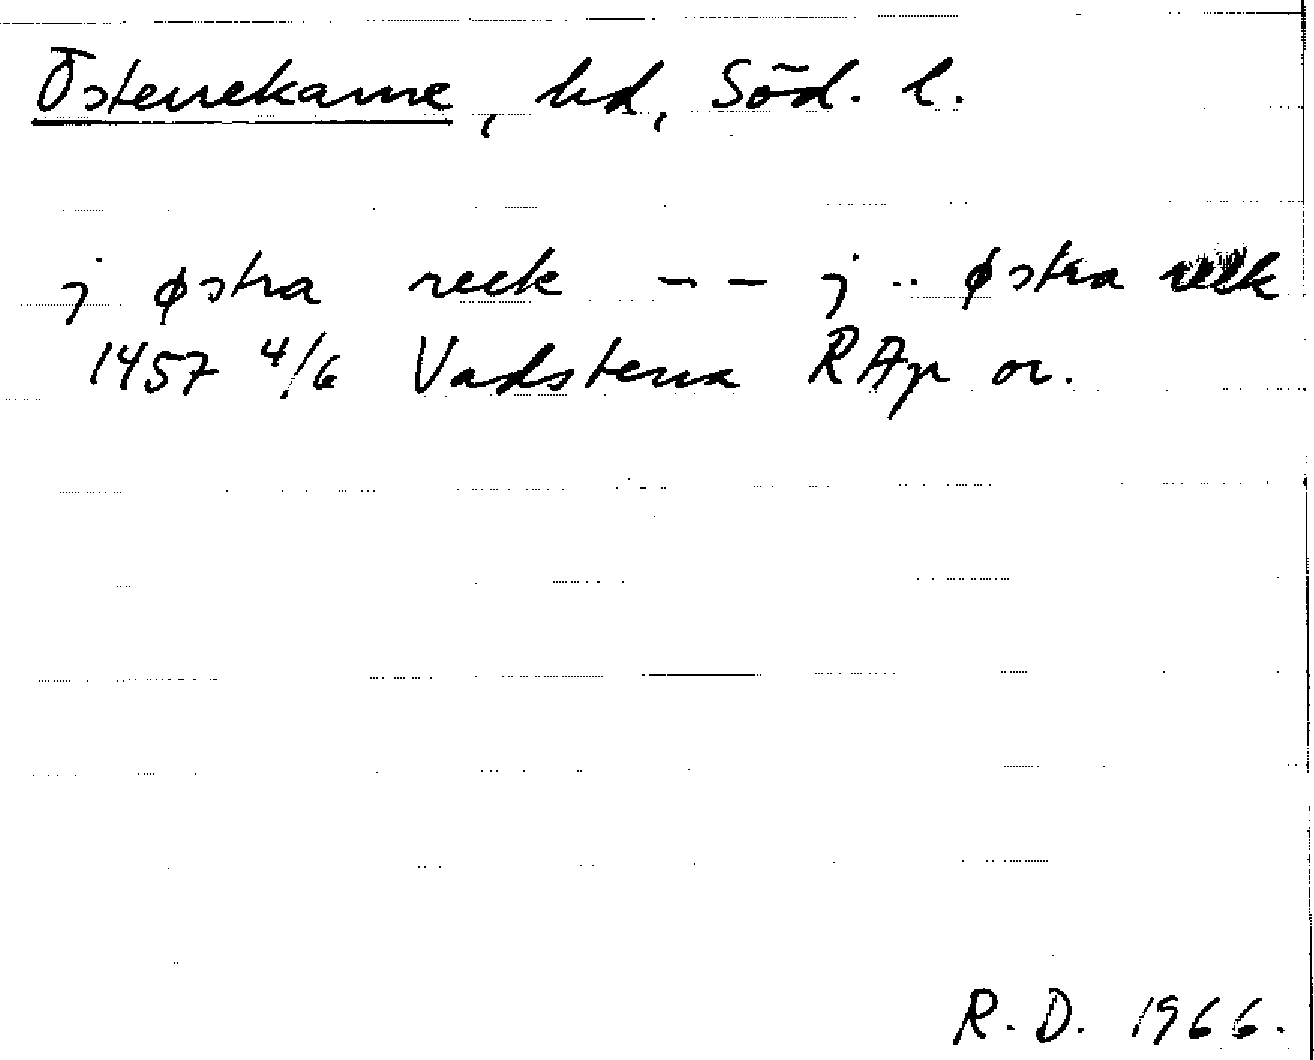 Österrekarne, hd, Söd. l.
j østra reck -- j .. østra reck
1457 4/6 Vadstena RAp or.
R. D. 1966.